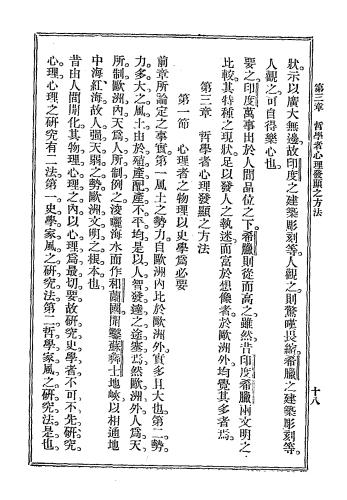 第三章　哲學者心理發顯之方法
十八
狀示以廣大無邊故印度之建築彫刻等人觀之則驚嘆畏縮希臘之建築彫刻等
人觀之可自得樂心也
要之印度萬事出於人間品位之下希臘則從而高之雖然昔印度希臘兩文明之
比較其特種之現狀足以發人之執迷而富於想像者於歐洲外均覺其多者焉
第三章　哲學者心理發顯之方法
第一節　心理者之物理以史學爲必要
前章所論定之事實第一風土之勢力自歐洲內比於歐洲外實多且大也第二勢
力多大之風土由於殖產配產不平均是以人智發達之途塞焉然歐洲外人爲天
所制歐洲內天爲人所制例之淩灑海水而作和蘭國開鑿蘇彛士地峽以相通地
中海紅海故人强天弱之勢歐洲文明之根本也
昔由人間開化其物理心理之內以心理爲最切要故研究史學者不可不先研究
心理心理之研究有二法第一史學家風之研究法第二哲學家風之研究法是也